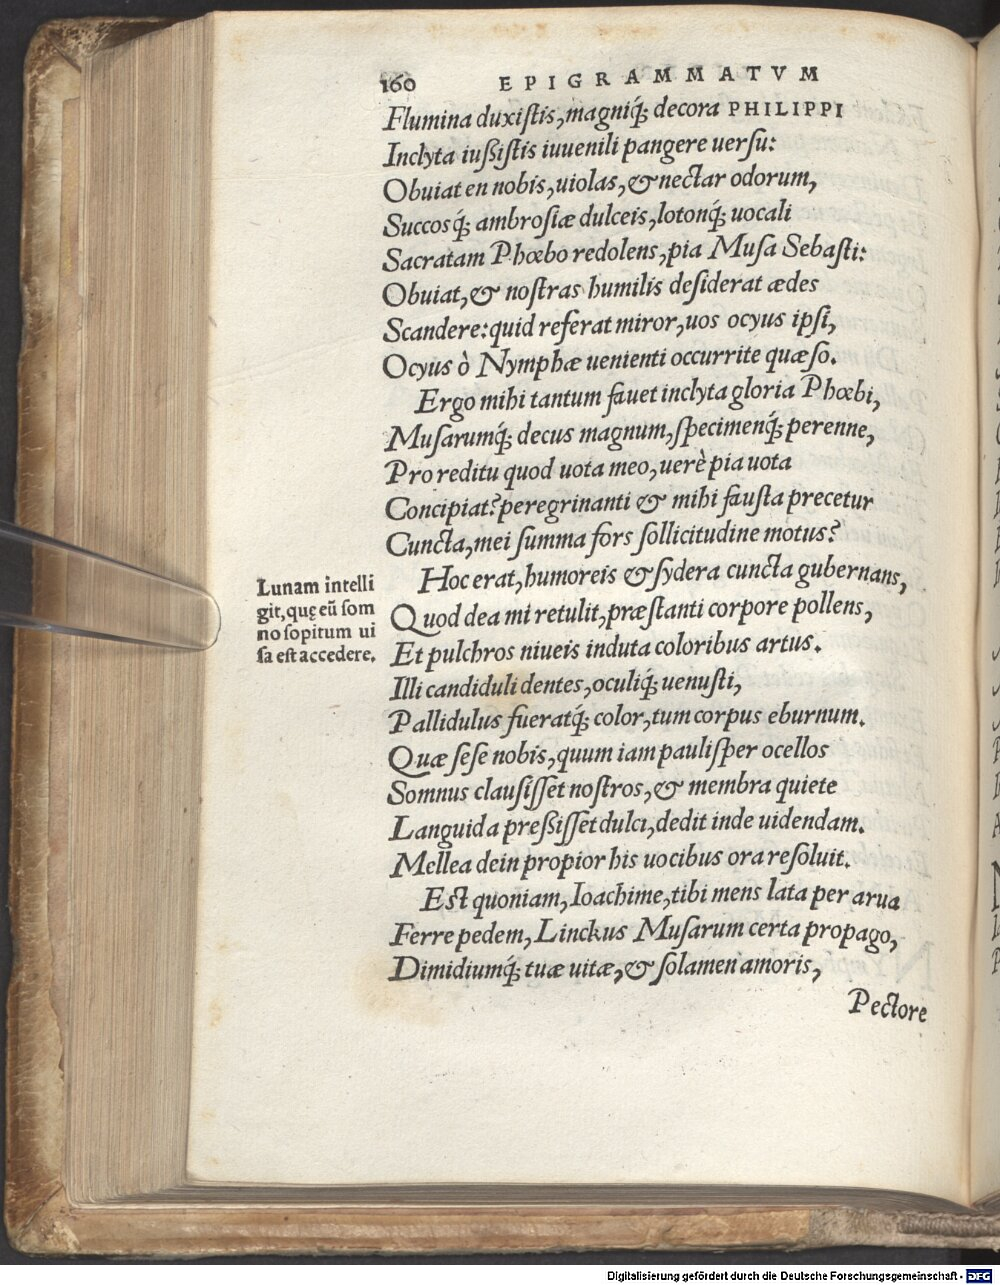 160 EPIGRAMMATVM
Flumina duxiſtis, magniq́; decora PHILIPPI
Inclyta iußiſtis iuuenili pangere uerſu:
Obuiat en nobis, uiolas, & nectar odorum,
Succosq́; ambroſiæ dulceis, lotonq́; uocali
Sacratam Phœbo redolens, pia Muſa Sebaſti:
Obuiat, & noſtras humilis deſiderat ædes
Scandere: quid referat miror, uos ocyus ipſi,
Ocyus ò Nymphæ uenienti occurrite quæſo.
Ergo mihi tantum fauet inclyta gloria Phœbi,
Muſarumq́; decus magnum, ſpecimenq́; perenne,
Pro reditu quod uota meo, uerè pia uota
Concipiat? peregrinanti & mihi fauſta precetur
Cuncta, mei ſumma fors ſollicitudine motus?
Hoc erat, humoreis & ſydera cuncta gubernans,
Quod dea mi retulit, præſtanti corpore pollens,
Et pulchros niueis induta coloribus artus.
Illi candiduli dentes, oculiq́; uenuſti,
Pallidulus fueratq́; color, tum corpus eburnum.
Quæ ſeſe nobis, quum iam pauliſper ocellos
Somnus clauſiſſet noſtros, & membra quiete
Languida preßiſſet dulci, dedit inde uidendam.
Mellea dein propior his uocibus ora reſoluit.
Eſt quoniam, Ioachime, tibi mens lata per arua
Ferre pedem, Linckus Muſarum certa propago,
Dimidiumq́; tuæ uitæ, & ſolamen amoris,
Pectore
Lunam intelli
git, quę eū ſom
no ſopitum ui
ſa eſt accedere.
Digitalisierung gefördert durch die Deutsche Forschungsgemeinschaft - DFG